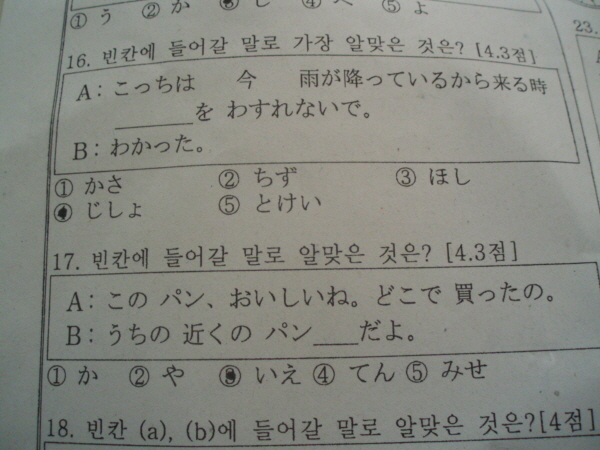 ① う ② か ③ し ④ へ ⑤ ょ
16. 빈칸에 들어갈 말로 가장 알맞은 것은? [4.3점]
A: こっちは 今 雨が降っているから来る時
______を わすれないで。
B: わかった。
① かさ ② ちず ③ ほし
④ じしょ ⑤ とけい
17. 빈칸에 들어갈 말로 알맞은 것은? [4.3점]
A: この パン、おいしいね。どこで 買ったの。
B: うちの 近くの パン___だよ。
① か ② や ③ いえ ④ てん ⑤ みせ
18. 빈칸 (a), (b)에 들어갈 말로 알맞은 것은?[4점]
23.